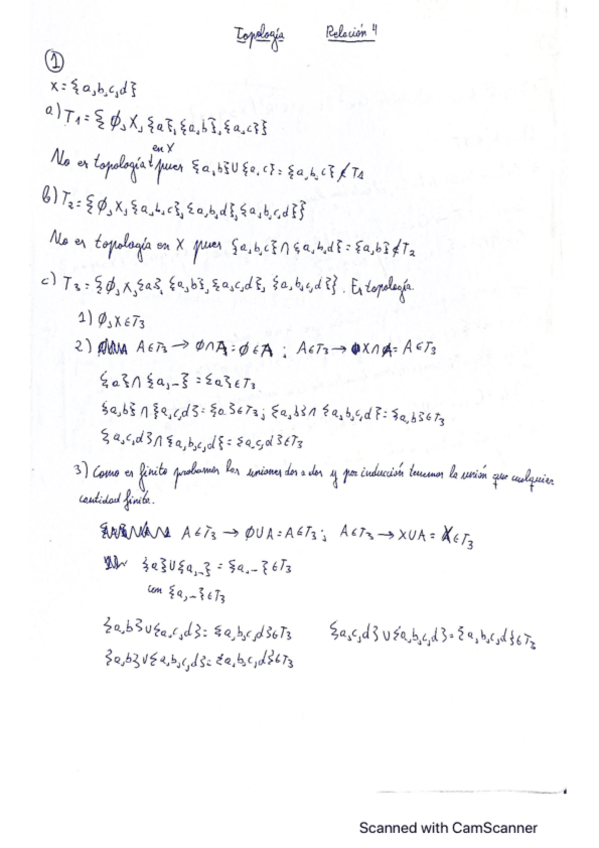 Topología Relación 4
1
X = {a,b,c,d}
a) T1 = {∅, X, {a}, {a,b}, {a,c}}
en X
No es topología pues {a,b}∪{a,c} = {a,b,c} ∉ T1
b) T2 = {∅, X, {a,b,c}, {a,b,d}, {a,b,c,d}}
No es topología en X pues {a,b,c} ∩ {a,b,d} = {a,b} ∉ T2
c) T3 = {∅, X, {a}, {a,b}, {a,c,d}, {a,b,c,d}}. Es topología.
1) ∅, X ∈ T3
2) A ∈ T3 → ∅∩A = ∅ ∈ A ; A ∈ T3 → X∩A = A ∈ T3
{a} ∩ {a,-} = {a} ∈ T3
{a,b} ∩ {a,c,d} = {a} ∈ T3 ; {a,b} ∩ {a,b,c,d} = {a,b} ∈ T3
{a,c,d} ∩ {a,b,c,d} = {a,c,d} ∈ T3
3) Como es finito probamos las uniones dos a dos y por inducción tenemos la unión que cualquier
cantidad finita.
A ∈ T3 → ∅∪A = A ∈ T3 ; A ∈ T3 → X∪A = X ∈ T3
{a} ∪ {a,-} = {a,-} ∈ T3
con {a,-} ∈ T3
{a,b} ∪ {a,c,d} = {a,b,c,d} ∈ T3 {a,c,d} ∪ {a,b,c,d} = {a,b,c,d} ∈ T3
{a,b} ∪ {a,b,c,d} = {a,b,c,d} ∈ T3
Scanned with CamScanner